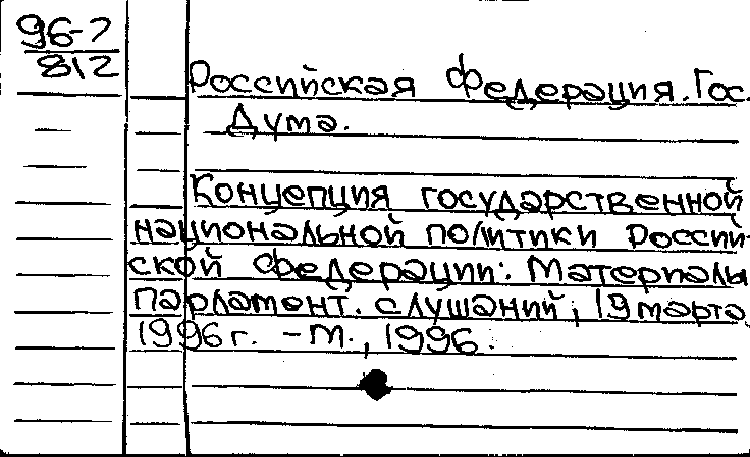 96-7
812
Российская Федерация. Гос.
Дума.
Концепция государственной
национальной политики Россий-
ской Федерации: Материалы
парламент. слушаний, 19 марта
1996 г. - М., 1996.